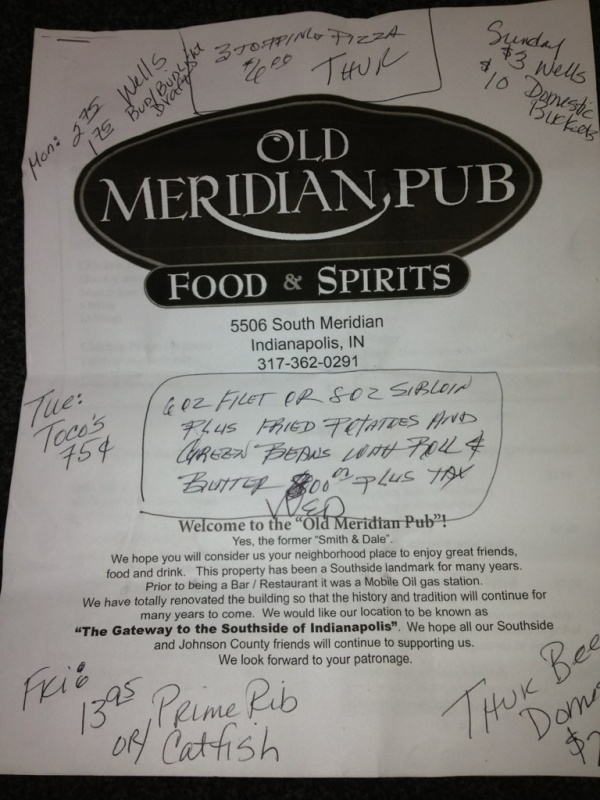 3 TOPPING PIZZA
$6.00
THUR
Mon: 2.75 Wells
1.75 Bud/Bud Lite
Drafts
Sunday
$3 Wells
$10 Domestic
Buckets
OLD
MERIDIAN PUB
FOOD & SPIRITS
5506 South Meridian
Indianapolis, IN
317-362-0291
Tue:
Toco's
75¢
6 OZ FILET OR 8 OZ SIRLOIN
PLUS FRIED POTATOES AND
GREEN BEANS WITH ROLL &
BUTTER PLUS TAX
WED
Welcome to the "Old Meridian Pub"!
Yes, the former "Smith & Dale".
We hope you will consider us your neighborhood place to enjoy great friends,
food and drink. This property has been a Southside landmark for many years.
Prior to being a Bar / Restaurant it was a Mobile Oil gas station.
We have totally renovated the building so that the history and tradition will continue for
many years to come. We would like our location to be known as
"The Gateway to the Southside of Indianapolis". We hope all our Southside
and Johnson County friends will continue to supporting us.
We look forward to your patronage.
Fri:
13.95 Prime Rib
OR/ Catfish
THUR Bee
Dome
$